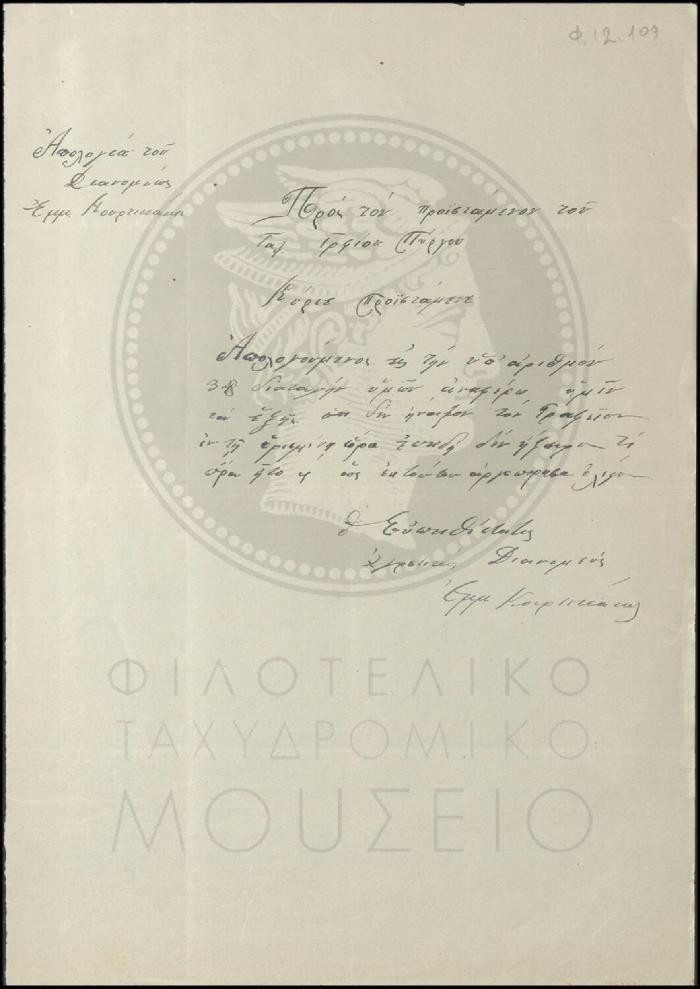 Φ.12.109
Ἀπολογία τοῦ
Διανομέως
Ἐμμ. Κουρτικάκη
Πρός τόν προϊστάμενον τοῦ
Ταχ. Γρφίου Πύργου
Κύριε Προϊστάμενε
Ἀπολογούμενος εἰς τήν ὑπ' ἀριθμόν
38 διαταγήν ὑμῶν ἀναφέρω ὑμῖν
τά ἑξῆς ὅτι δέν ἤνοιξον τόν Γραφεῖον
ἐν τῇ ὡρισμένῃ ὥρα ἐπειδή δέν ἤξευρον τί
ὥρα ἦτο ὡς ἐκ τούτου ἀργοπόρησα ὀλίγον
Ὁ Εὐπειθέστατος
Διανομεύς
Ἐμμ Κουρτικάκης
ΦΙΛΟΤΕΛΙΚΟ
ΤΑΧΥΔΡΟΜΙΚΟ
ΜΟΥΣΕΙΟ